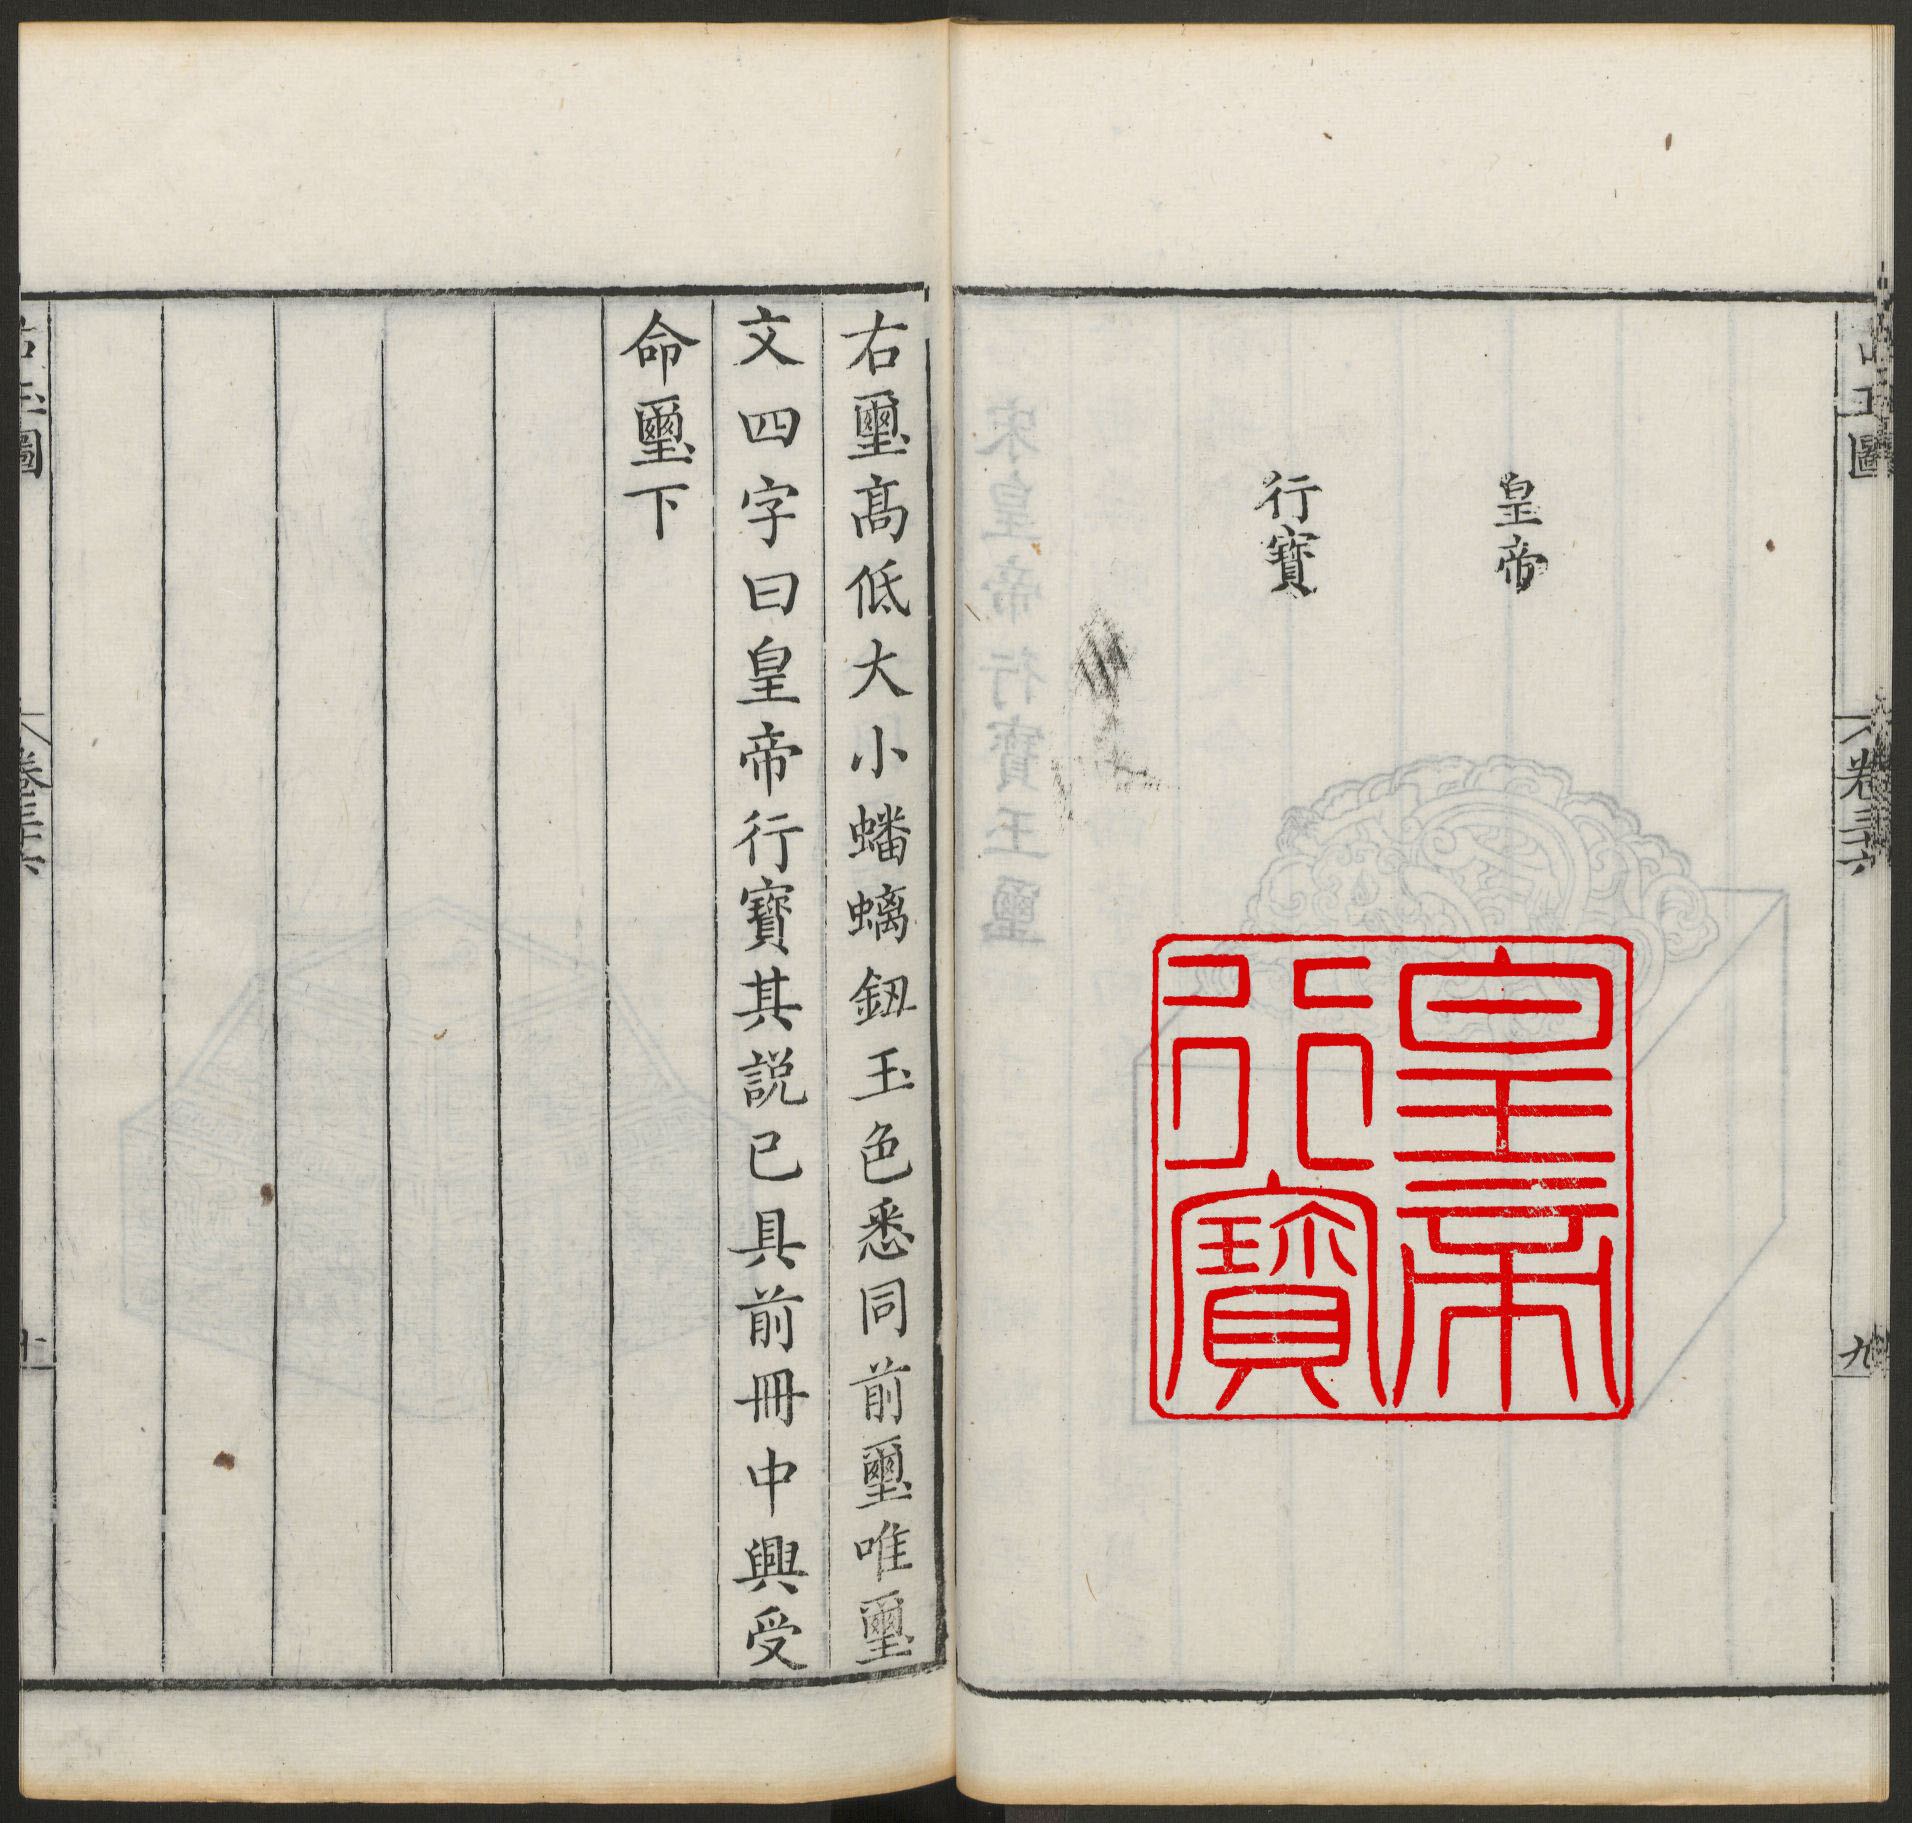 古玉圖
卷三六
九
皇帝
行寶
皇帝
行寶
右璽高低大小蟠螭鈕玉色悉同前璽唯璽
文四字曰皇帝行寶其説已具前冊中興受
命璽下
古玉圖
卷三六
十